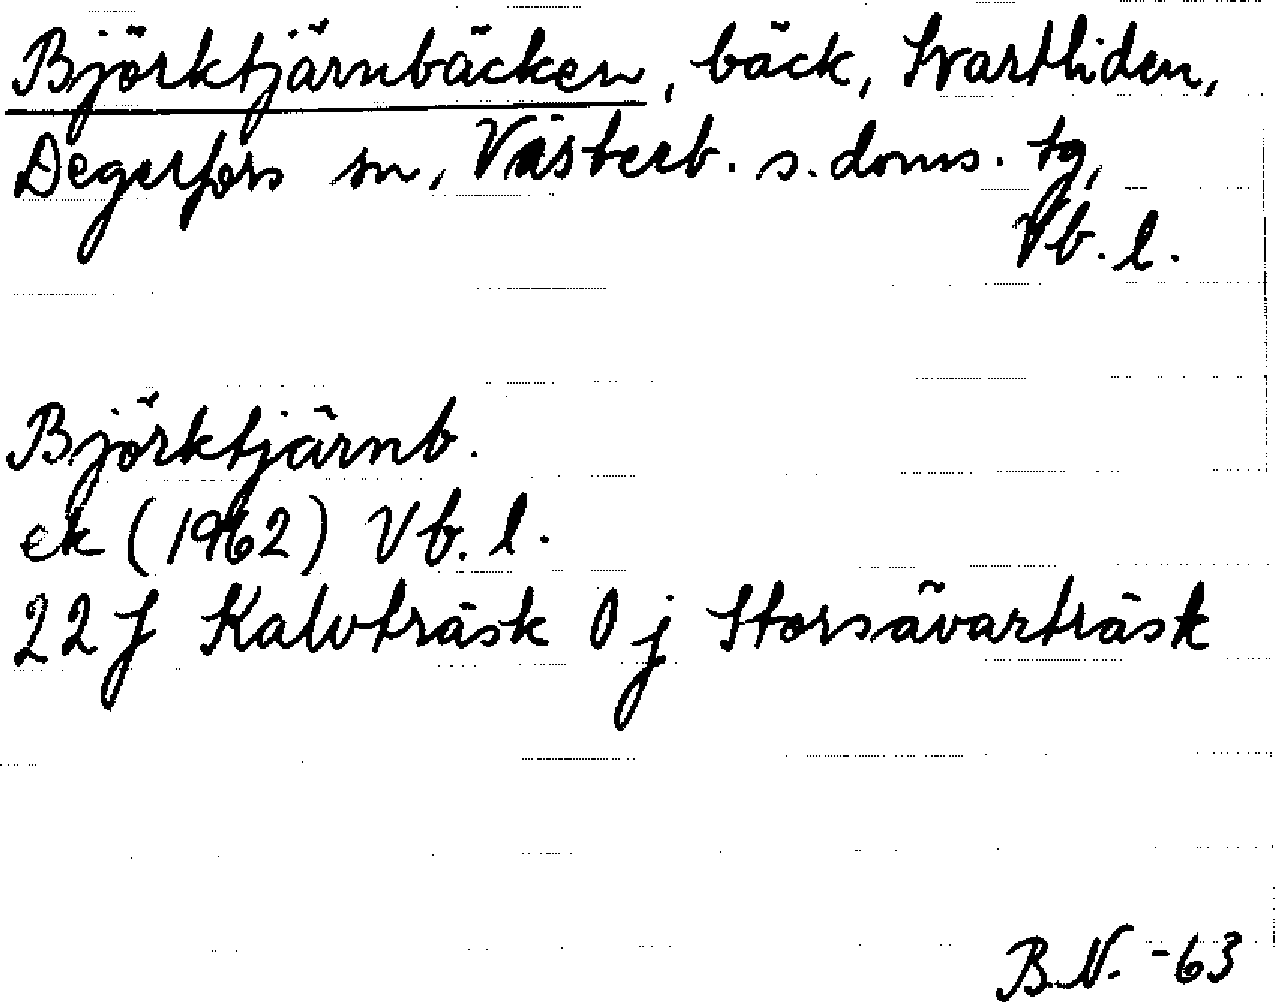 Björktjärnbäcken, bäck, Svartliden,
Degerfors sn, Västerb. s. doms. tg,
Vb. l.
Björktjärnb.
ek (1962) Vb. l.
22 J Kalvträsk 0 j Storsävarträsk
B.N. -63